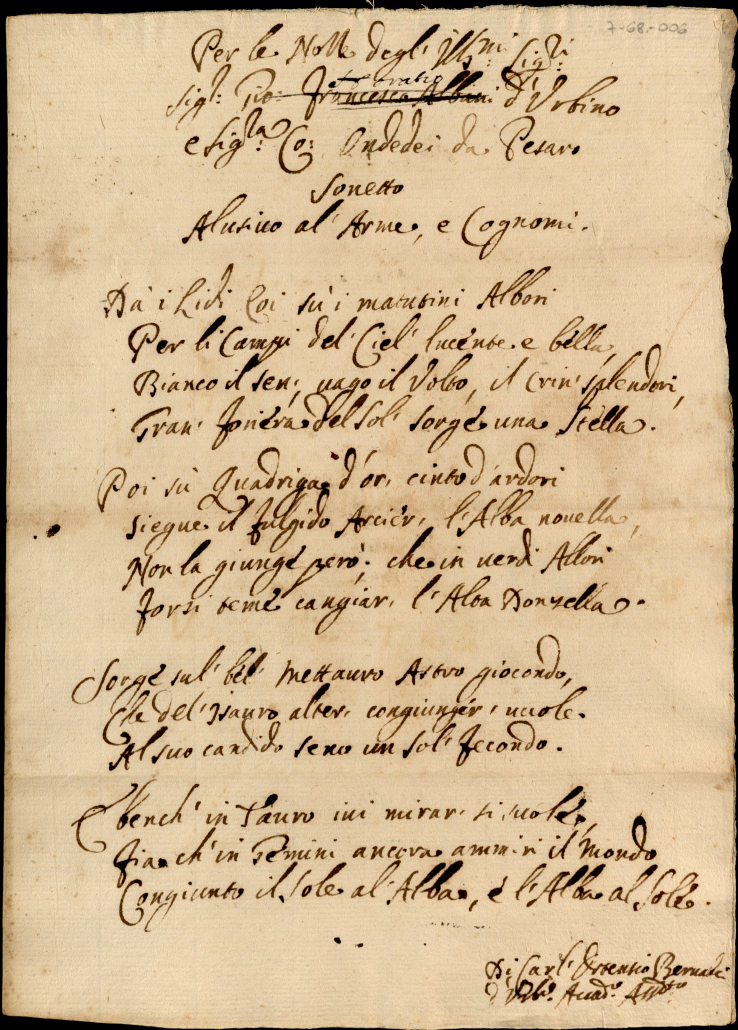 7-68-006
Per le Nosse degl' Ill:mi Sig:ri
Sig:r Gio: Francesco Albani d'Urbino
e Sig:ra Co: Ondedei da Pesaro
Sonetto
Alusivo al' Arme, e Cognomi.
Da i Lidi Eoi sù i matutini Albori
Per li Campi del' Ciel' lucente e bella,
Bianco il sen', vago il Volto, il crin' splendori,
Gran' foriera del Sol' sorge una Stella.
Poi sù Quadriga d'or, cinto d'ardori
Siegue il fulgido Arcier, l'Alba novella,
Non la giunge però; che in verdi Allori
Forsi teme cangiar, l'Alba Donzella.
Sorge sul' bel' Mettauro Astro giocondo,
Che del' Isauro alter, congiunger, vuole
Al suo candido seno un Sol' fecondo.
E bench' in Tauro ivi mirar si suole,
Fia ch' in Gemini ancora ammiri il Mondo
Congiunto il Sole al' Alba, e l'Alba al Sole.
Di Carl' Ortensio
d'Urb:o Accad:o